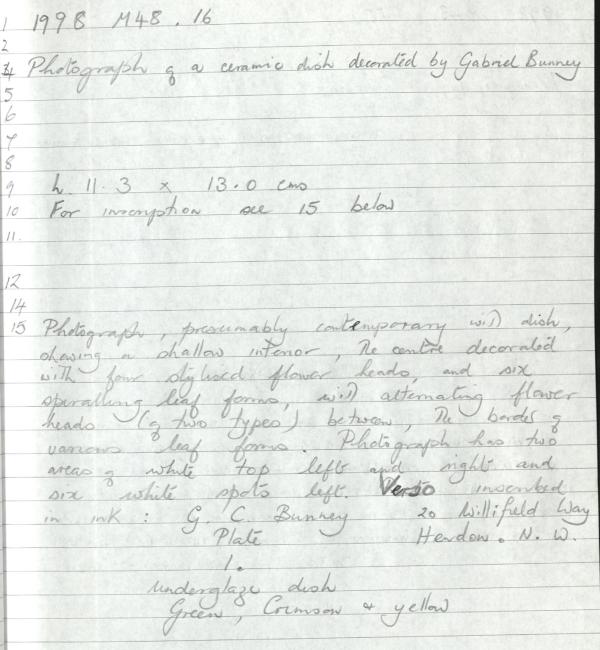 1 1998 M48.16
2
3/4 Photograph of a ceramic dish decorated by Gabriel Bunney
5
6
7
8
9 h. 11.3 x 13.0 cms
10 For inscription see 15 below
11.
12
14
15 Photograph, presumably contemporary with dish,
showing a shallow interior, The centre decorated
with four stylised flower heads, and six
spiralling leaf forms, with alternating flower
heads (of two types) between, The border of
various leaf forms. Photograph has two
areas of white top left and right and
six white spots left. Verso inscribed
in ink: G. C. Bunney 20 Willifield Way
Plate Hendon. N. W.
1.
underglaze dish
Green, Crimson & yellow